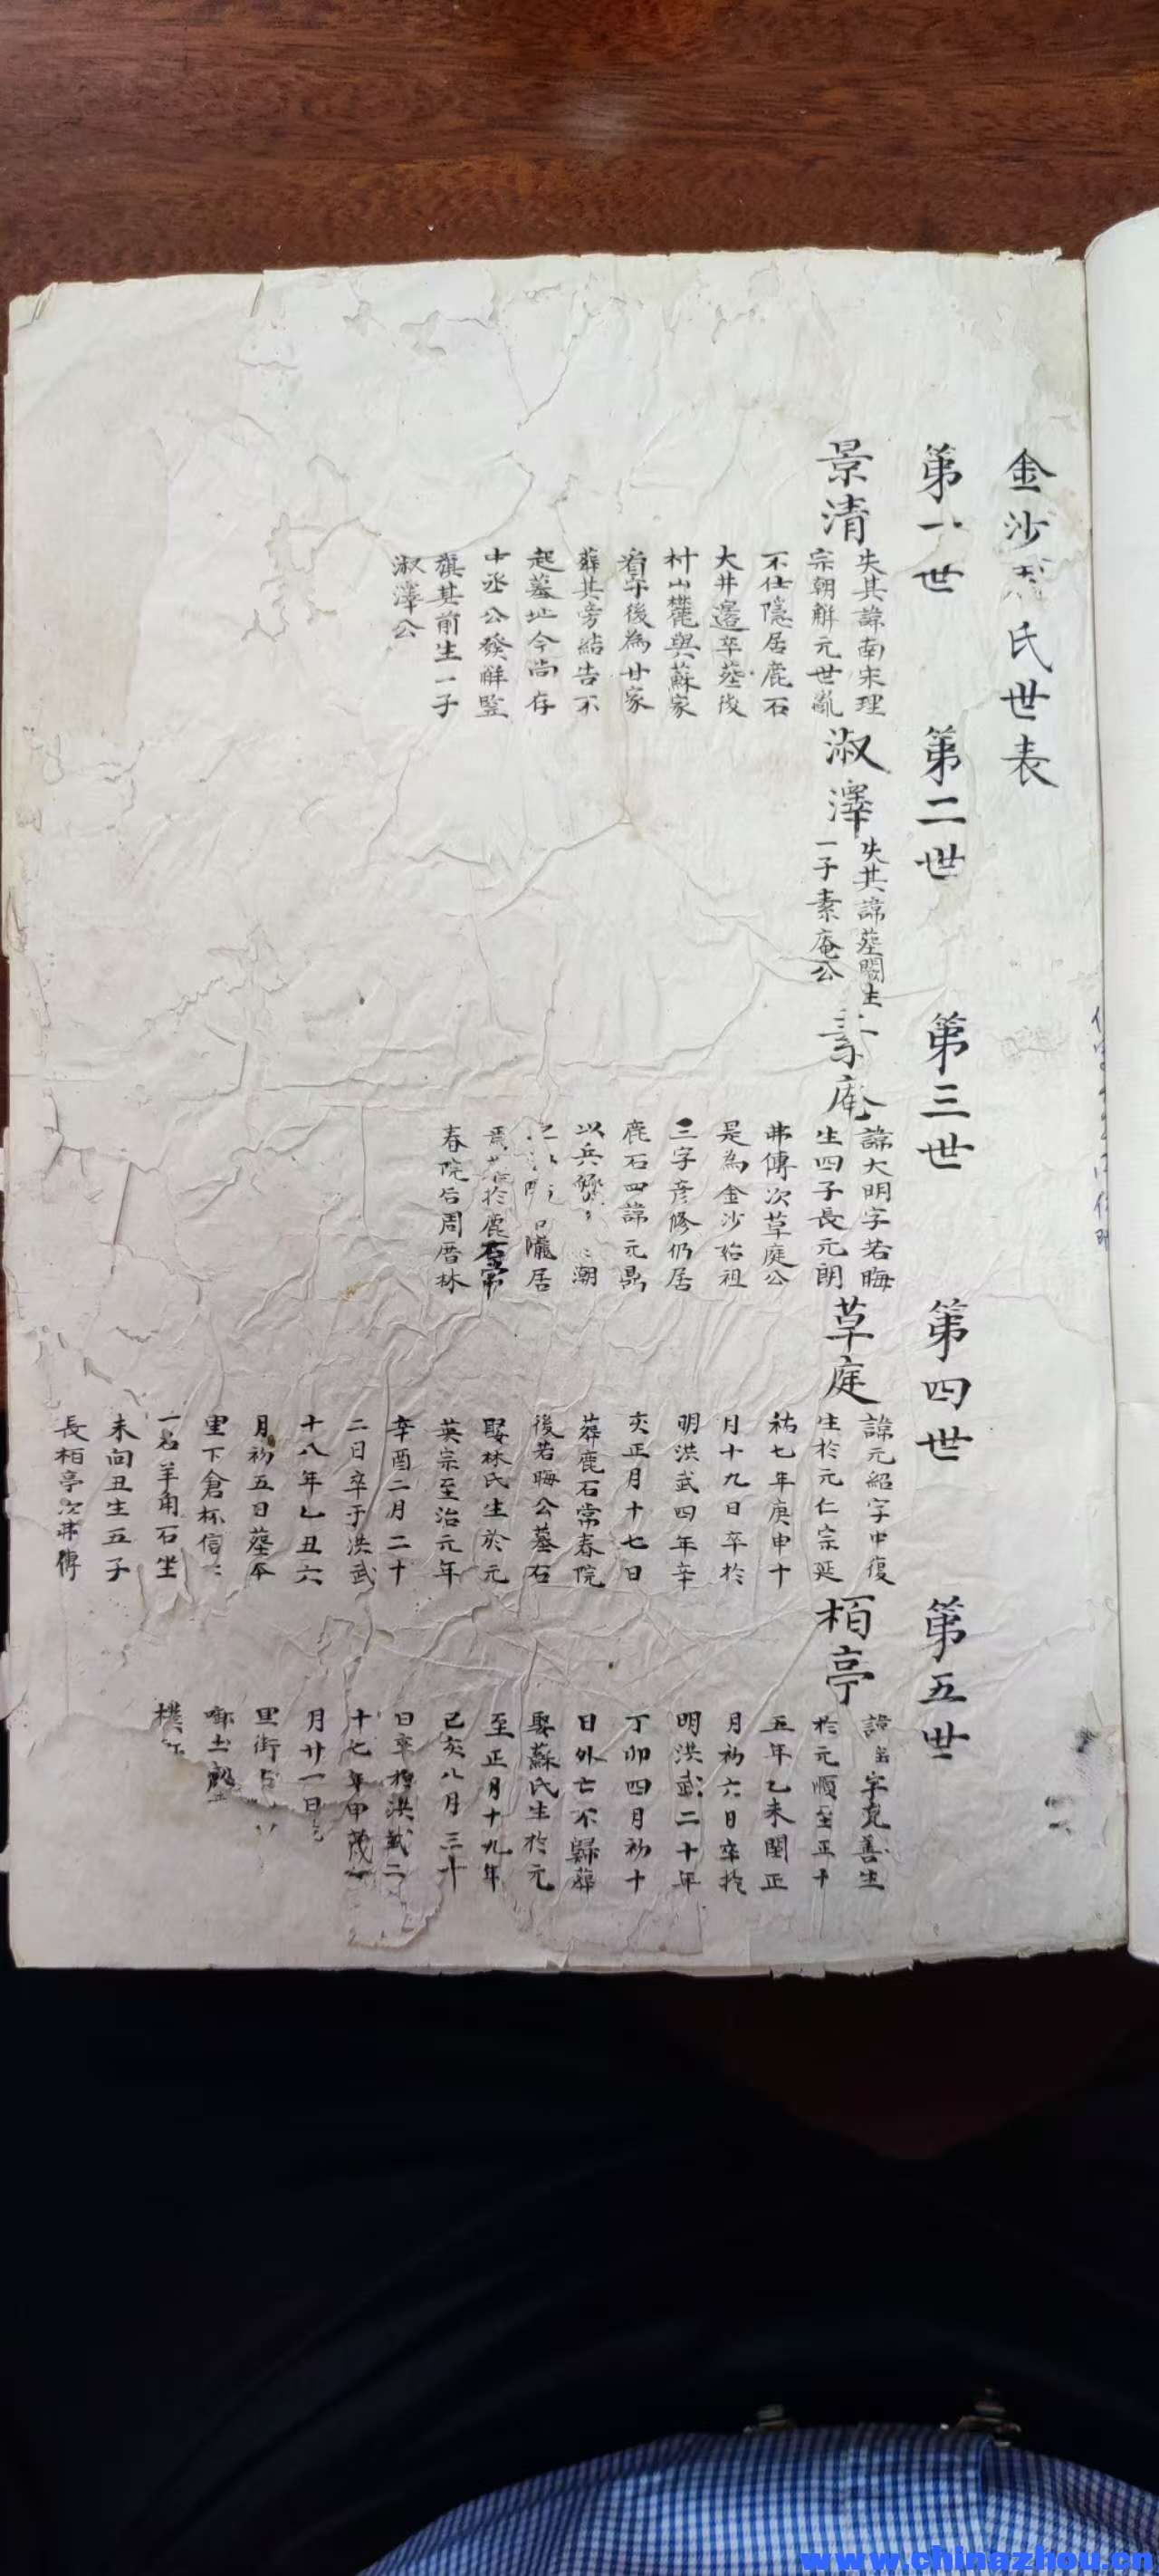 金沙周氏世表
第一世
第二世
第三世
第四世
第五世
景清
失其諱南宋理
宗朝解元世亂
不仕隱居鹿石
大井邊卒塟後
村山麓與蘇家
看守後為廿家
葬其旁結告不
起墓址今尚存
中丞公發解豎
旗其前生一子
淑澤公
淑澤
失其諱塟闕生
一子素庵公
素庵
諱大明字若晦
生四子長元朗
弗傳次草庭公
是為金沙始祖
三字彦修仍居
鹿石四諱元鼎
以兵燹潮
隴居
於鹿石常
春院后周厝林
草庭
諱元紹字中復
生於元仁宗延
祐七年庚申十
月十九日卒於
明洪武四年辛
亥正月十七日
葬鹿石常春院
後若晦公墓石
娶林氏生於元
英宗至治元年
辛酉二月二十
二日卒于洪武
十八年乙丑六
月初五日塟本
里下倉杯信
一名羊角石坐
未向丑生五子
長栢亭次弗傳
栢亭
諱字克善生
於元順至正十
五年乙未閏正
月初六日卒於
明洪武二十年
丁卯四月初十
日外亡不歸葬
娶蘇氏生於元
至正月十九年
己亥八月三十
日卒於洪武二
十七年甲戌
月廿一日
里街
鄉土
樸
www.chinazhou.cn